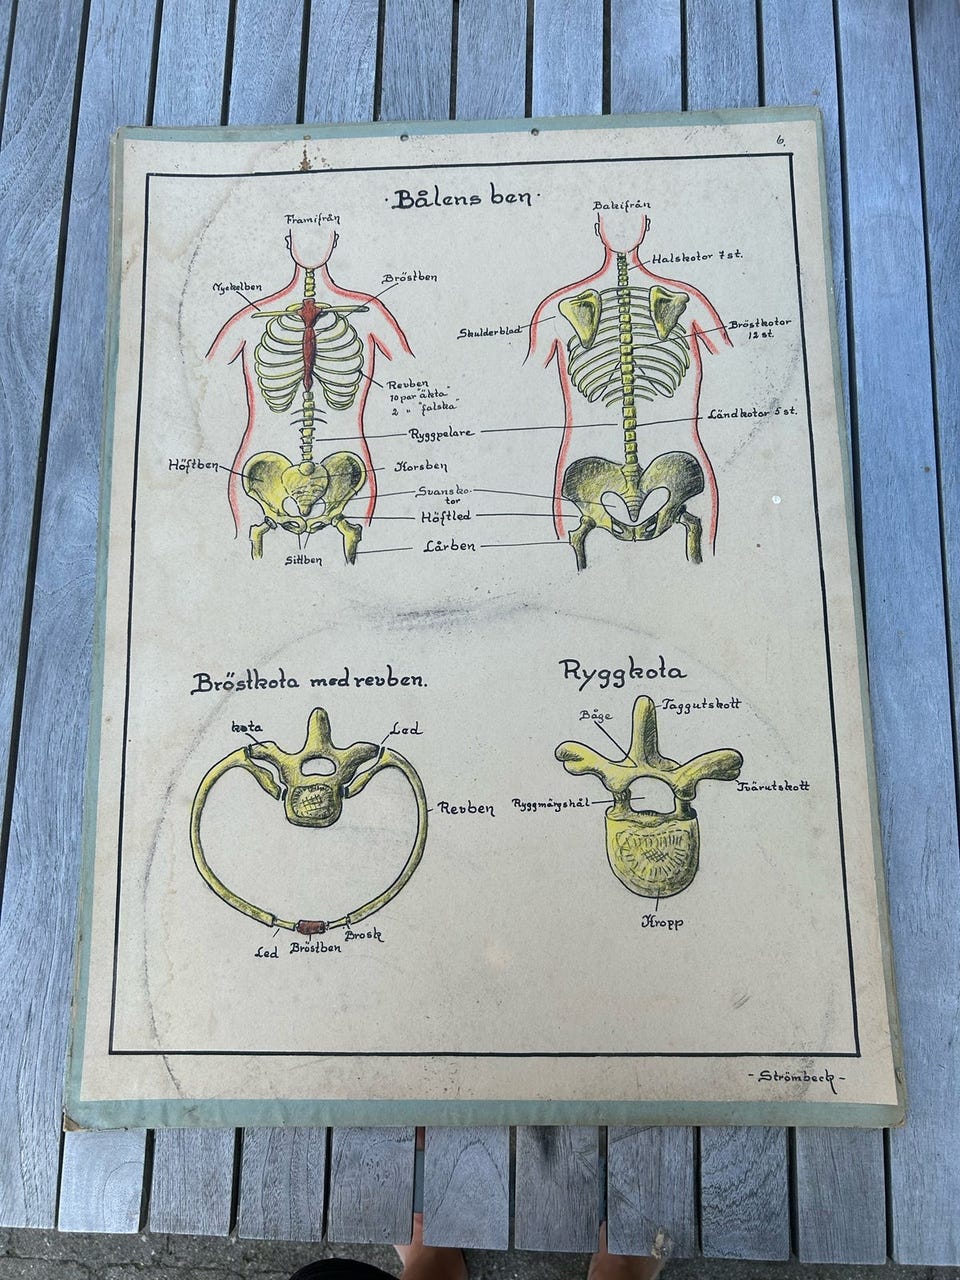 6.
·Bålens ben·
Framifrån
Bakifrån
Nyckelben
Bröstben
Halskotor 7 st.
Skulderblad
Bröstkotor
12 st.
Revben
10 par "äkta"
2 " "falska"
Ländkotor 5 st.
Ryggpelare
Höftben
Korsben
Svansko-
tor
Höftled
Lårben
Sittben
Bröstkota med revben.
Ryggkota
kota
Led
Båge
Taggutskott
Tvärutskott
Revben
Ryggmärgshål
Led
Bröstben
Brosk
Kropp
-Strömbeck-